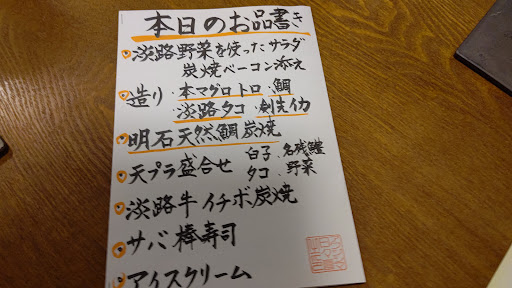 本日のお品書き
淡路野菜を使ったサラダ
炭焼ベーコン添え
造り 本マグロトロ 鯛
淡路タコ 剣先イカ
明石天然鯛炭焼
天プラ盛合せ 白子、名残鱧
タコ、野菜
淡路牛イチボ炭焼
サバ棒寿司
アイスクリーム